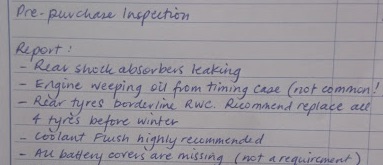 Pre-purchase Inspection
Report:
- Rear shock absorbers leaking
- Engine weeping oil from timing case (not common!
- Rear tyres borderline RWC. Recommend replace all
4 tyres before winter
- Coolant Flush highly recommended
- All battery covers are missing (not a requirement)